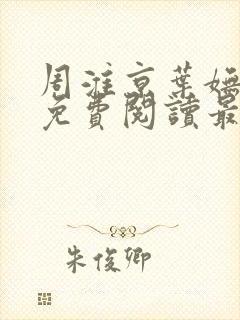 周淮京葉嫵
免費閱讀最
朱俊卿